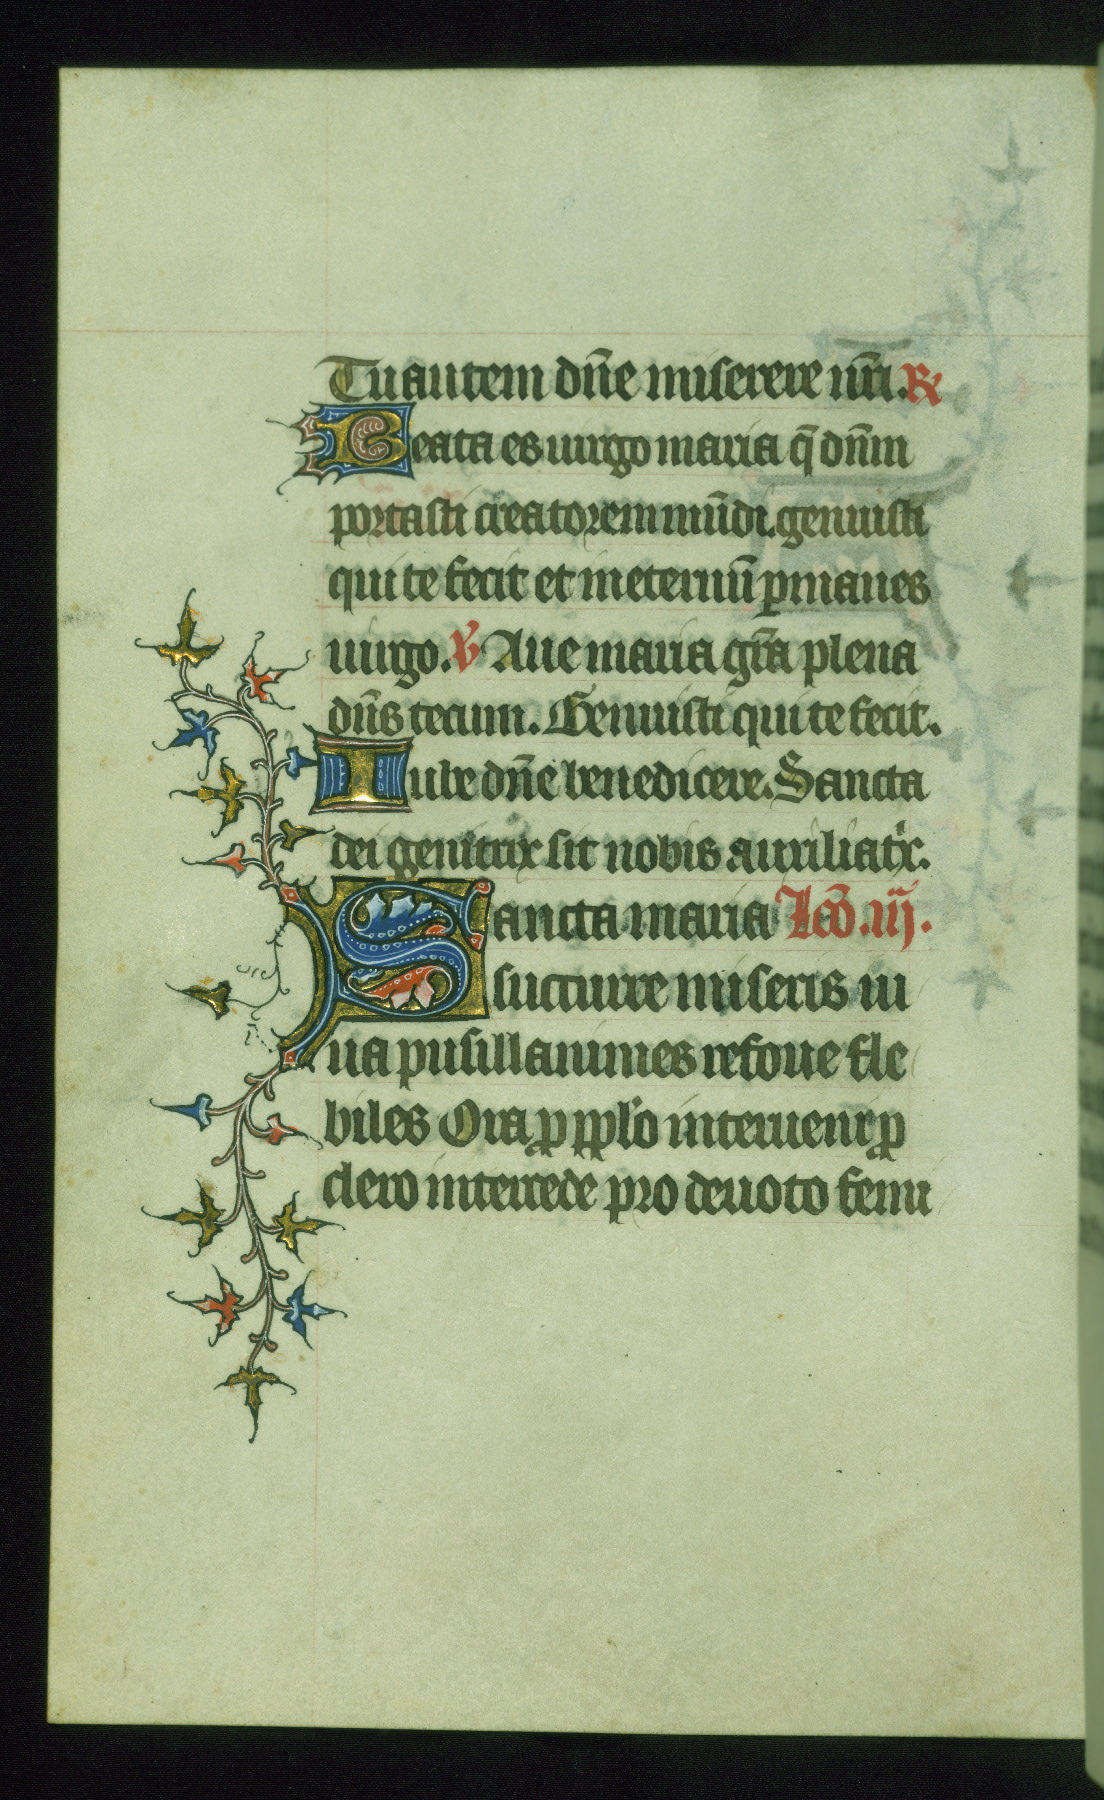 Tu autem dn̄e miserere nr̄i. ℟
Beata es uirgo maria q̄ dn̄m
portasti creatorem mūdi. genuisti
qui te fecit et in eternū ꝑmanes
uirgo. ℣ Aue maria gr̄a plena
dn̄s tecum. Genuisti qui te fecit.
Iube dn̄e benedicere. Sancta
dei genitrix sit nobis auxiliatͥx.
Sancta maria Lcō. iij.
succurre miseris iu
ua pusillanimes refoue fle
biles Ora ꝓ pplo interueni ꝓ
clero intercede pro deuoto femi